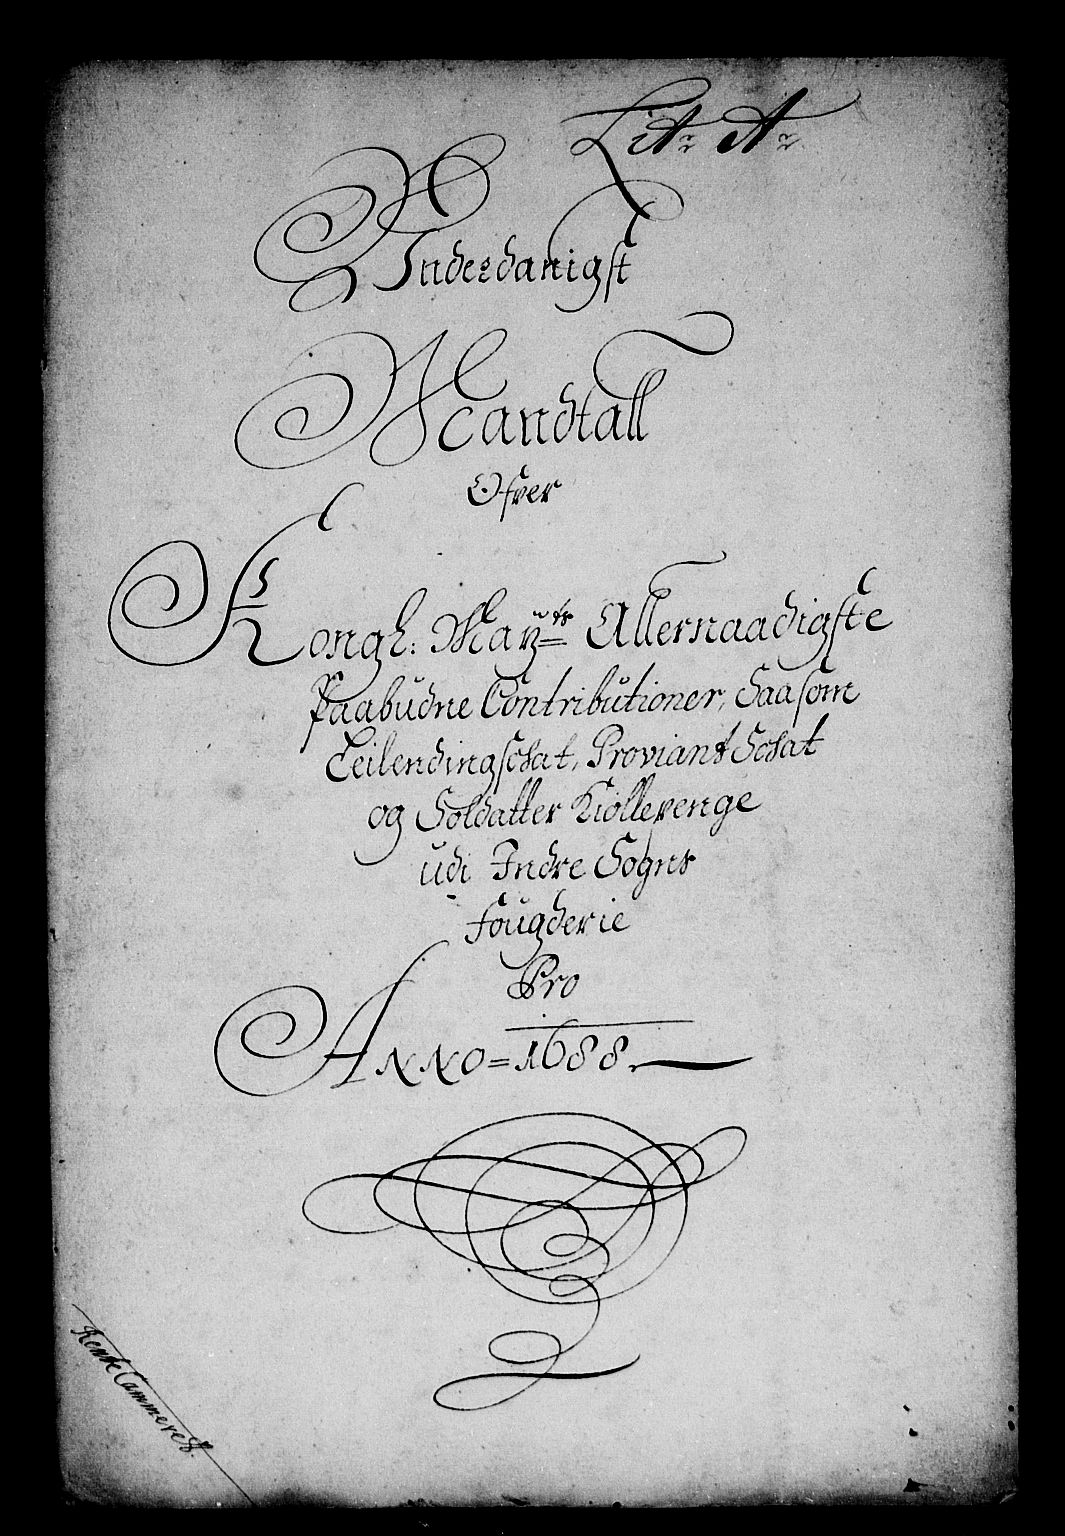 Lit: A:
Underdanigst
Mandtall
Ofver
Kongl: Mayz:ts Allernaadigste
Paabudne Contributioner, Saasom
Leilendingschat, Proviant Schat
og Soldatter Kiollepenge
udi Indre Sogns
fougderie
Pro
Anno = 1688.
Rente Cammeret.